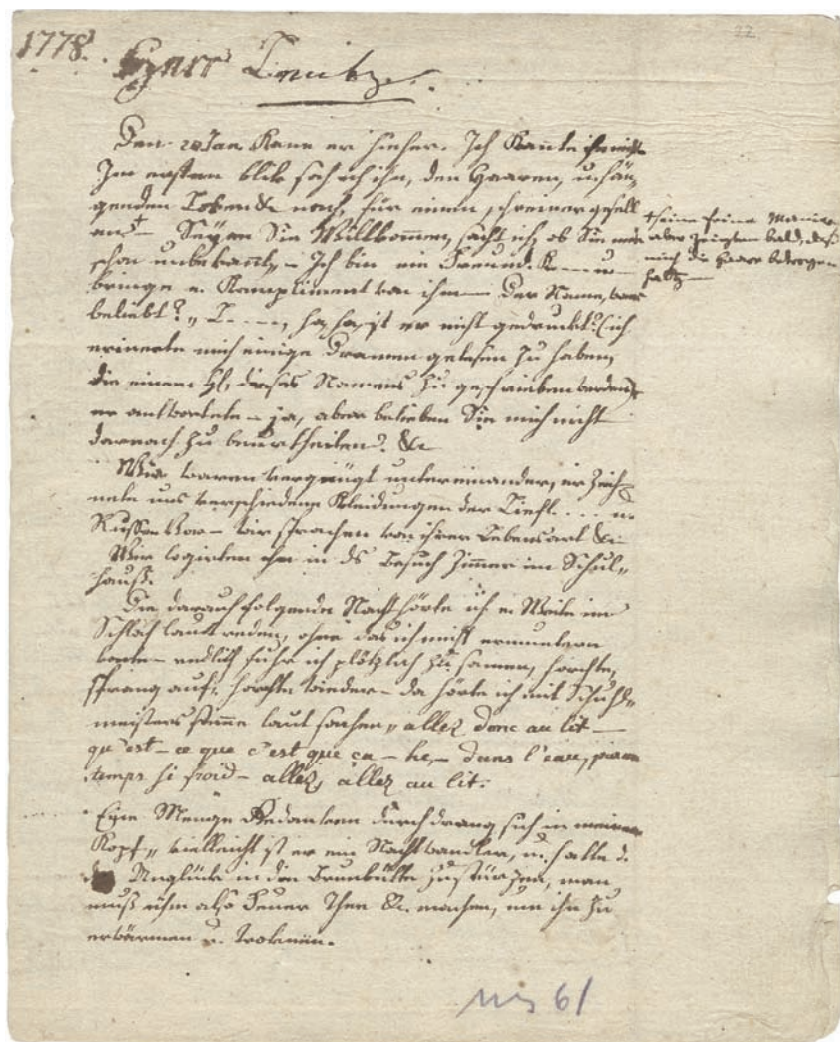 1778. Herr Lentz.
Den 20 Jan. kame er hieher. Ich kannte ihn nicht.
Im ersten blik sah ich ihn, den Haaren, u. hän=
genden Loken nach, für einen Schreinergesell
an+ – Seyen Sie Willkommen, sagt ich, ob Sie mir
schon unbekannt„ – Ich bin ein Freund K... u.
bringe e. Kompliment von ihm – Der Name, wens
beliebt?„ L....., ha, ha, ist er nicht gedrukt? (ich
erinerte mich einige Dramen gelesen zu haben,
die einem H. dieses Namens zugeschrieben wurden)
er antwortete – ja, aber belieben Sie mich nicht
darnach zu beurtheilen. &c
+ seine feine Manier
aber zeigten bald, daß
mich die Haare betrogen
hatten
Wir waren vergnügt untereinander, er zeich=
nete uns verschiedene Kleidungen der Liefl.... u.
Russen vor – wir sprachen von ihrer Lebensart &c
Wir logirten ihn in ds Besuch Zimmer im Schul„
hauß.
Die darauf folgende Nacht hörte ich e. Weile im
Schlaf laut reden, ohne das ich mich ermuntern
konte – endlich fuhr ich plötzlich zusamen, horchte,
sprang auf, horchte wieder – da hörte ich mit Schuhl„
meisters stimme laut sachen„ allez donc au lit –
qu'est – ce que c'est que ça – he, – dans l'eau, par un
temps si froid – allez, allez au lit.
Eine Menge Gedanken durchdrang sich in meinem
Kopf„ vielleicht ist er ein Nachtwandler, u. hatte d.
Unglück in die Brunbütte zu stürzen, man
muß ihm also Feuer Thee &c. machen, um ihn zu
erwärmen u. troknen.